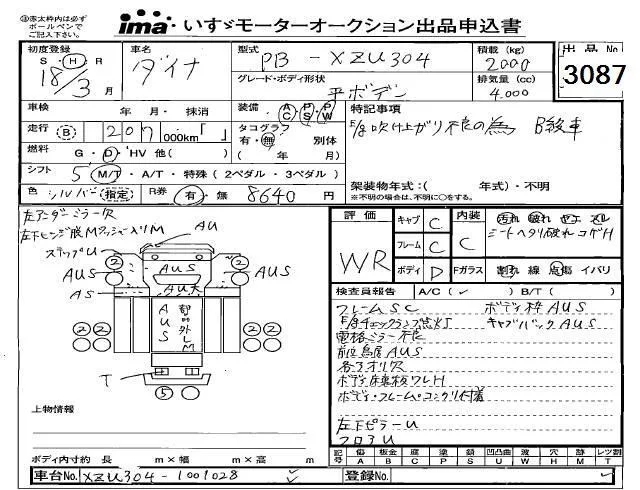 ※赤太枠内は必ず
ボールペンで
ご記入下さい。
ima いすゞモーターオークション出品申込書
初度登録
S・H・R
18/3 月
車名
ダイナ
型式
PB - XZU304
グレード・ボディ形状
平ボデー
積載 (kg)
2000
排気量 (cc)
4.000
出品No
3087
車検 年 月・抹消
装備
AC PS PW
特記事項
E/g吹け上がり不良の為 B級車
走行 B 207 000km「 」
タコグラフ
有・無 別体
( 年 月)
燃料 G・D・HV 他( )
シフト 5 M/T・A/T・特殊(2ペダル・3ペダル)
架装物年式:( 年式)・不明
※不明の場合は、不明に○をする。
色 シルバー 指定 R券 有・無 8640円
左アンダーミラー欠
ステップU
AU
AUS
AUS
AUS
AS
AU大
AUS
T
2
2
2
2
5
評価
WR
キャブ C
フレーム C
ボディ D
内装 C
Fガラス
汚れ 破れ ヤケ スレ
シートヘタリ破れコゲH
割れ 線 点傷 イバリ
検査員報告 A/C(✓) B/T( )
フレームSC
ボディ枠AUS
E/gチェックランプ点灯
キャブバックAUS
電格ミラー不良
前立鳥居AUS
各ライオリ欠
ボディ床要板ワレH
ボディ・フレーム・コンクリ付着
左下ピラーU
フロアU
上物情報
ボディ内寸約 長 m×幅 m×高 m
記号 傷 板金 庭 塗 錆 凹凸曲 波 穴 跡 レツ割
A B C P S U W H M T
車台No. XZU304-1001028
登録No.